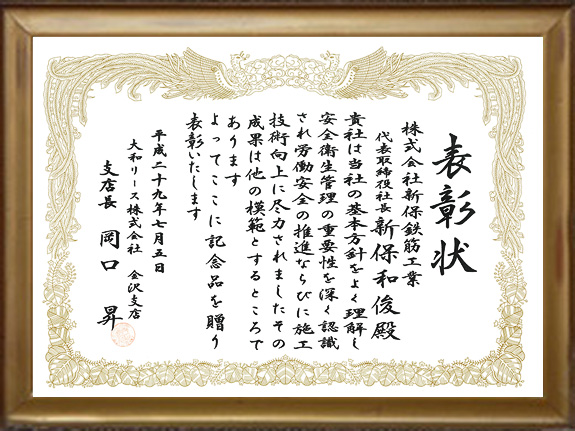 表彰状
株式会社新保鉄筋工業
代表取締役社長 新保和俊殿
貴社は当社の基本方針をよく理解し
安全衛生管理の重要性を深く認識
され労働安全の推進ならびに施工
技術向上に尽力されましたその
成果は他の模範とするところで
あります
よってここに記念品を贈り
表彰いたします
平成二十九年七月五日
大和リース株式会社 金沢支店
支店長 岡口 昇